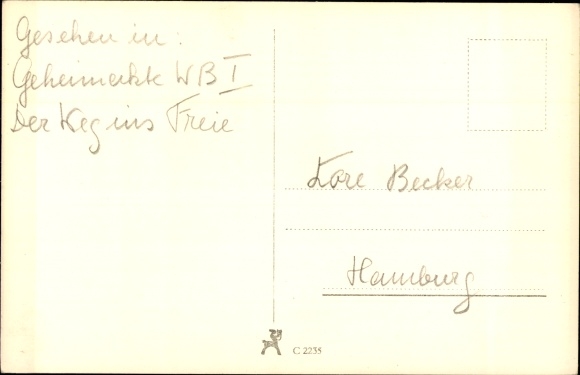 Gesehen in:
Geheimakte WB I
Der Weg ins Freie
Lore Becker
Hamburg
C 2235